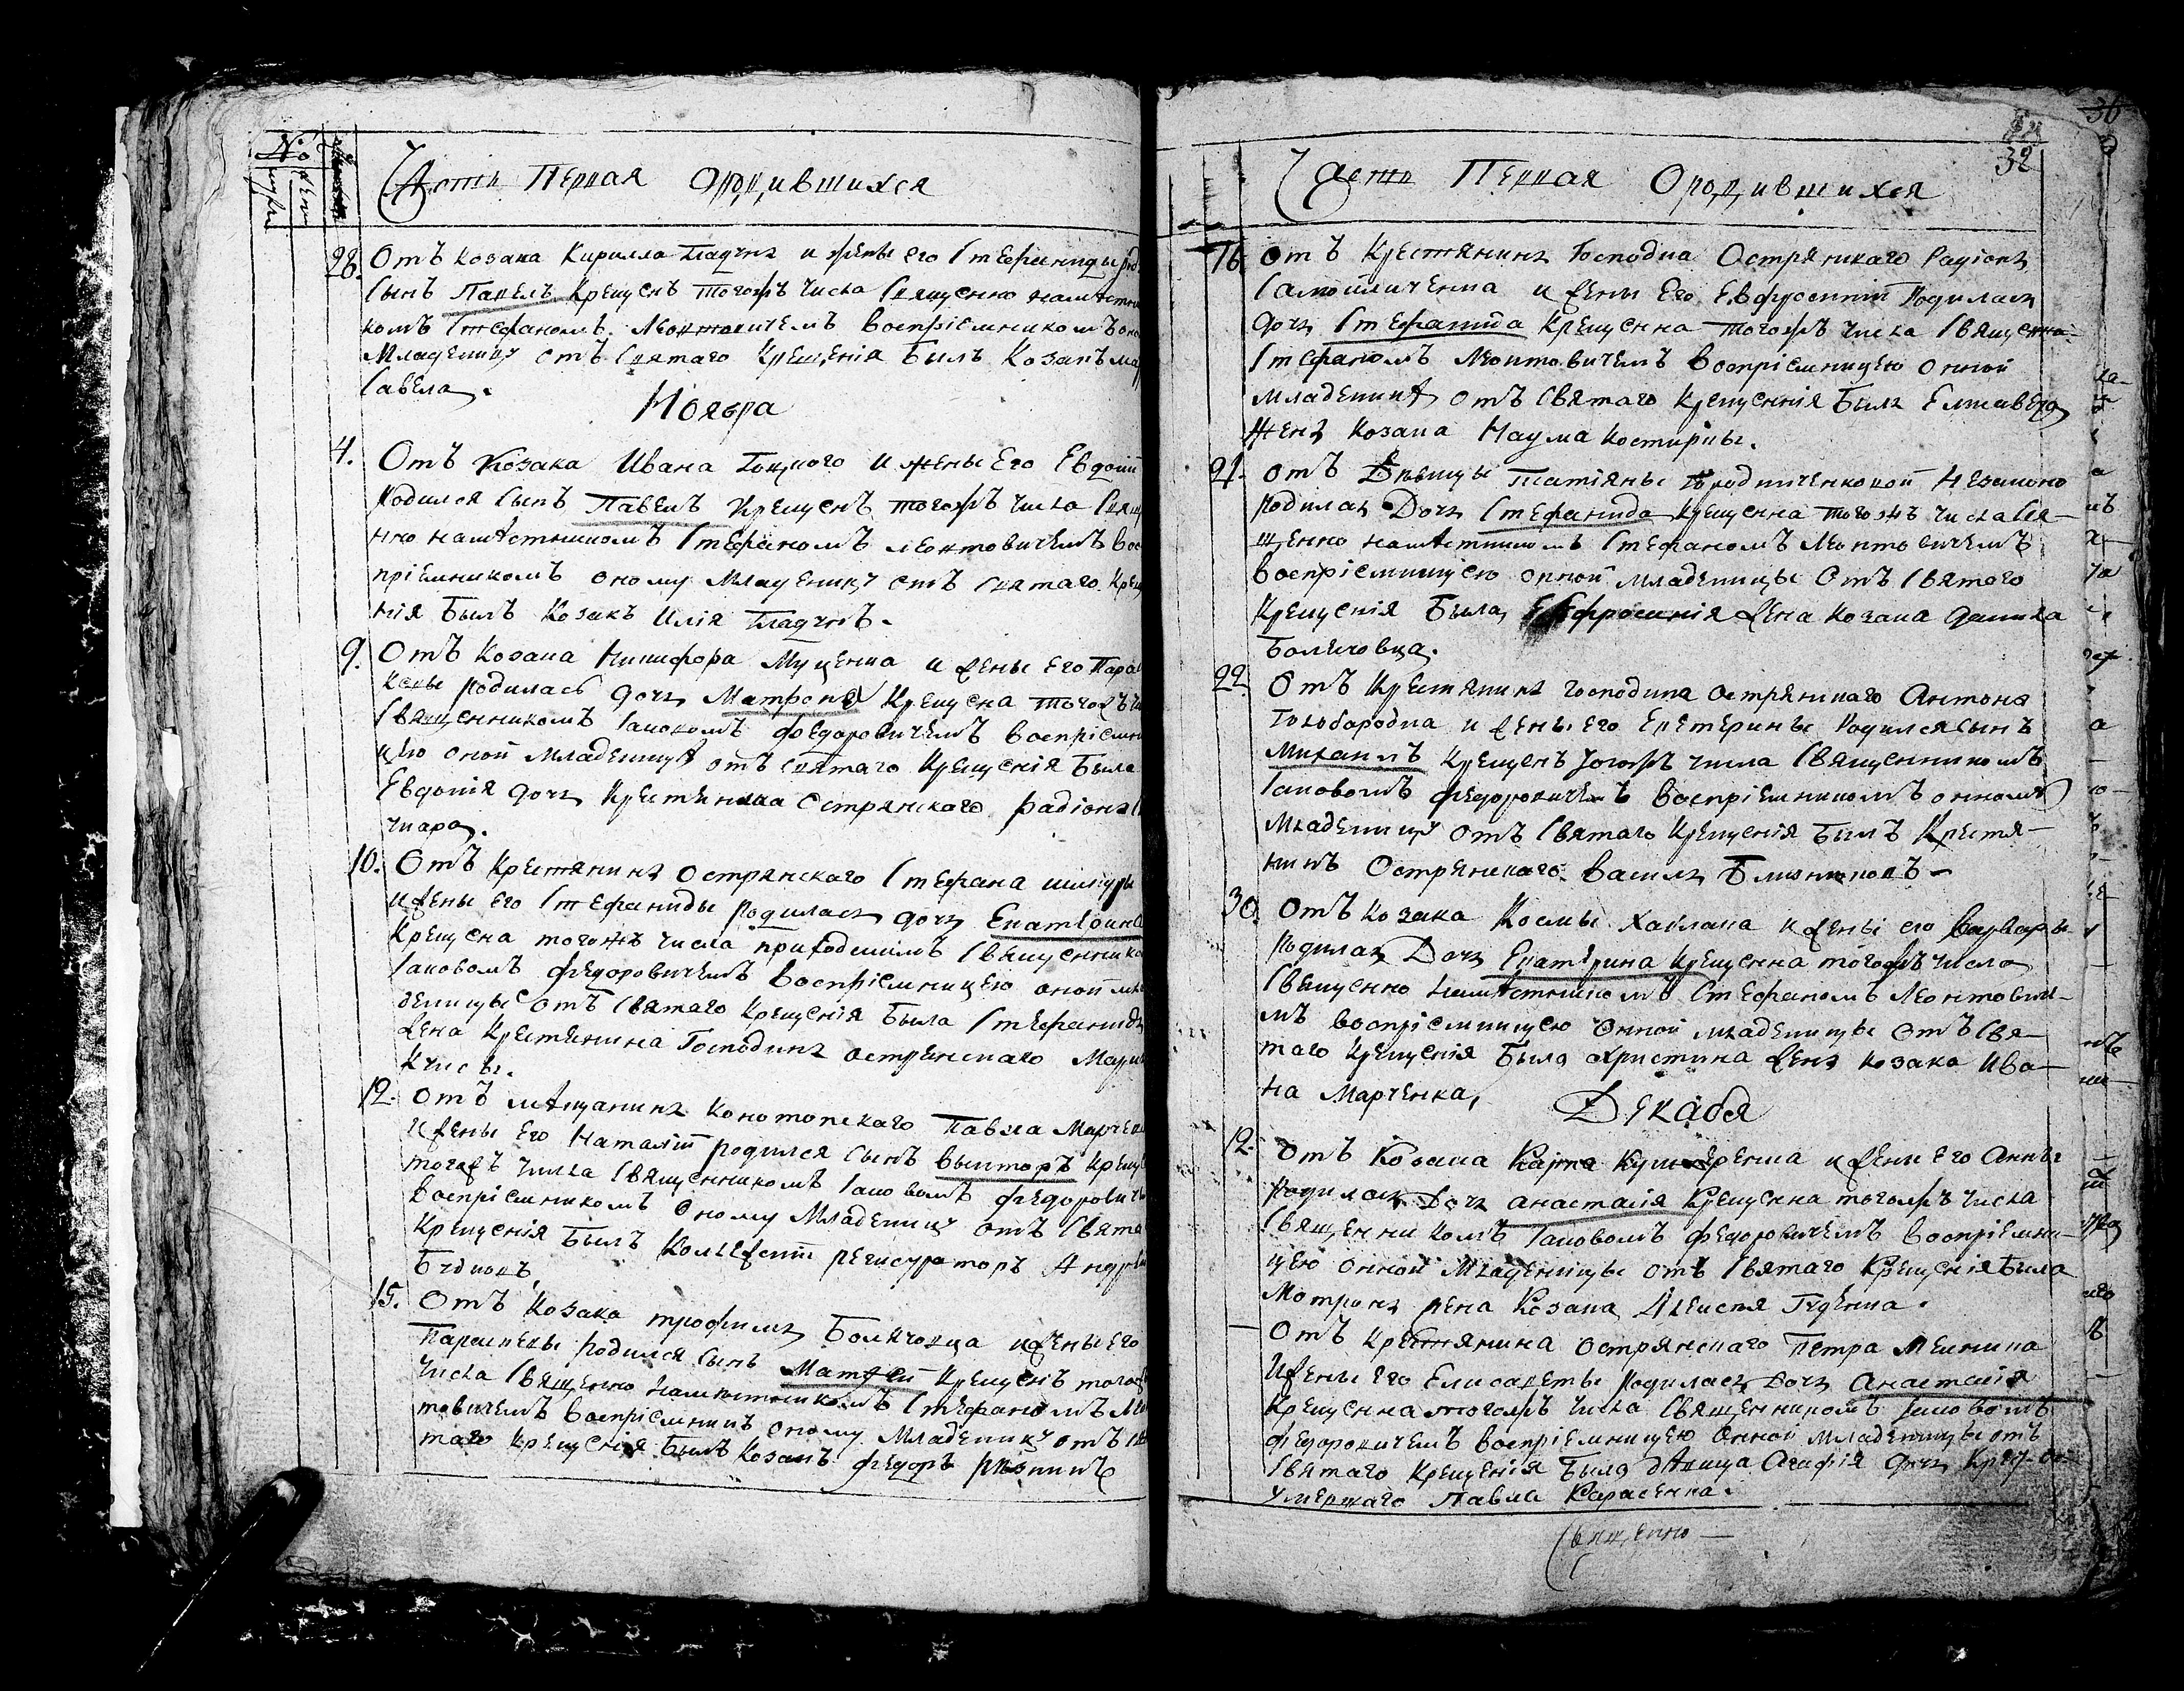 №
Часть Первая О родившихся
28. Отъ козака Кирилла Гладчка и жены его Стефаниды род
сынъ Павелъ Крещенъ тогожъ числа Священно намѣстни
комъ Стефаномъ Леонтовичемъ воспріемникомъ оно
Младенцу отъ Святаго Крещенія былъ Козакъ
Савела.
Ноября
4. Отъ Козака Ивана и жены Его Евдокіи
родился сынъ Павелъ Крещенъ тогожъ числа Свящ
нно намѣстникомъ Стефаномъ Леонтовичемъ вос
пріемникомъ оному Младенцу отъ Святаго Крещ
нія былъ Козакъ Илія Гладчкъ.
9. Отъ Козака Никифора Муценка и жены его Парас
кевы родилась дочь Матрона Крещена тогожъ чи
Священникомъ Іаковомъ Федоровичемъ воспріемни
цею оной младеницѣ отъ Святаго Крещенія была
Евдокія дочь Крестянина Острянскаго Радіона
10. Отъ Крестянина Острянскаго Стефана
и жены его Стефаниды родилась дочь Екатерина
Крещена тогожъ числа приходскимъ Священнико
Іаковомъ Федоровичемъ воспріемницею оной мла
деницы отъ Святаго Крещенія была Стефанида
жена Крестянина Господина Острянскаго
12. Отъ мѣщанина Конотопскаго Павла Марчен
и жены Его Наталіи родился сынъ Викторъ Крещ
тогожъ числа Священникомъ Іаковомъ Федорович
воспріемникомъ Оному Младенцу отъ Свята
Крещенія былъ Колежскій регистраторъ Андрей
15. Отъ Козака Трофима Болячовца и жены Его
родился сынъ Матфей Крещенъ тогож
числа Священно намѣстникомъ Стефаномъ Лео
товичемъ воспріемникъ оному Младенцу отъ Свя
таго Крещенія былъ Козакъ Федоръ Рѣзникъ
36
32
Часть Первая О родившихся
16 Отъ Крестянина Господина Острянскаго Радіона
Самойличенка и жены Его Евфросиніи Родилась
дочь Стефанида Крещенна тогожъ числа Священно-
Стефаномъ Леонтовичемъ воспріемницею онной
младеницѣ отъ Святаго Крещеннія была Елисавета
жена Козака Наума Костирки.
21. Отъ Дѣвицы Татіяны Бродниченковой Незаконо
родилась Дочь Стефанида Крещенна тогожъ числа Свя-
щенно намѣстникомъ Стефаномъ Леонтовичемъ
воспріемницею онной младеницы Отъ Святаго
Крещенія была Евфросинія жена козака Данила
Болячовца.
22. Отъ Крестянина господина Острянскаго Антона
Голобородка и жены его Екатерины родился сынъ
Михаилъ Крещенъ тогожъ числа Священникомъ
Іаковомъ Федоровичемъ воспріемникомъ онному
младенцу отъ Святаго Крещенія былъ Крестя-
нинъ Острянскаго Василь
30. Отъ козака Космы Хайлака и жены его Варвары
родилась Дочь Екатерина Крещенна тогожъ числа
Священно намѣстникомъ Стефаномъ Леонтовиче-
мъ воспріемницею онной младеницы отъ Свя-
таго Крещенія была Христина жена козака Ива-
на Марченка,
Декабя
12. Отъ Козака Карпа и жены его Анны
родилась Дочь Анастасія Крещенна тогожъ числа
Священникомъ Іаковомъ Федоровичемъ воспріемни-
цею онной младеницы отъ Святаго Крещенія была
Мотрона жена Козака Алексея Гуденка.
— Отъ крестянина Острянскаго Петра Мелника
и жены Его Елисаветы родилась дочь Анастасія
Крещенна тогожъ числа Священникомъ Іаковомъ
Федоровичемъ воспріемницею онной младеницы отъ
Святаго Крещенія была дѣвица Агафія дочь
умершаго Павла Карасенка.
Священно —